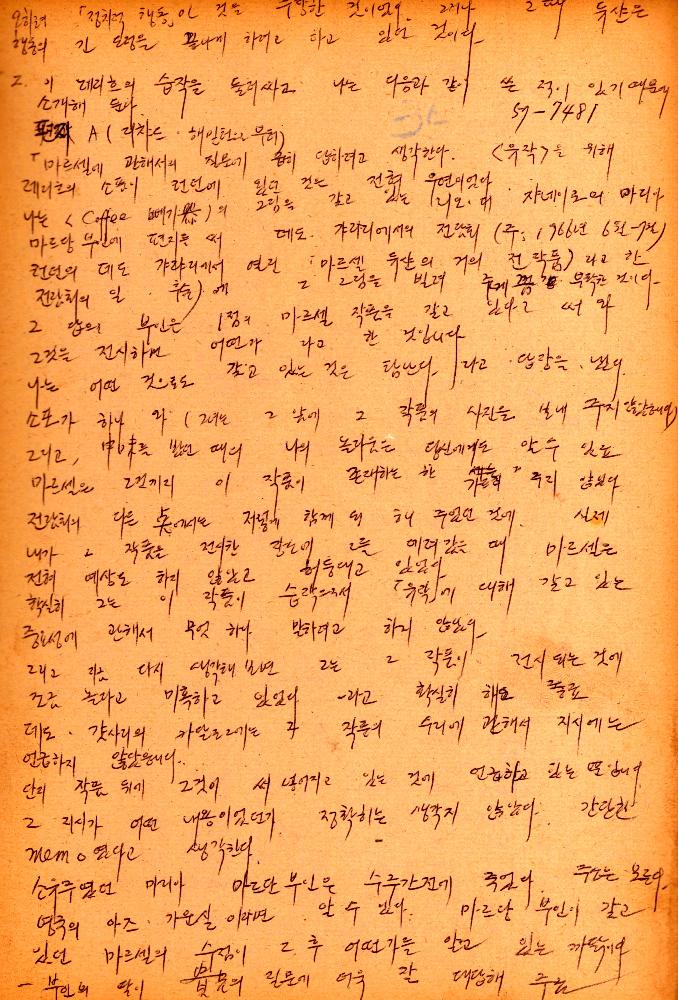 오히려 「정치적 행동」이 것은 것이었어. 그러나
행동의 긴 도정을 끝나게 하려고 하고 있던 것이다
2. 이 데리흐의 습작을 둘러싸고 나는 다음과 같이 쓴 적이 있기 때문에
소개해 둔다
57-7481
A (리차드·해밀턴으로부터)
「마르셀에 관해서의 질문에 답하려고 생각한다. <유작>을 위해
소포가 런던에 있던 것은 전혀 우연이었다
나는 <Coffee 빼기>의 그림을 갖고 있는 리오·데 쟈네이로의 마리아
마르단 부인에 편지를 써 데도·갸라리에서의 전람회 (주; 1966년 6월-7월)
런던의 데도 갸라리에서 열린 「마르셀 뒤샹의 거의 전 작품) 라고 한
전람회의 일·후술) 에 그 그림을 빌려 주게 부탁한 것이다-
그 답의 부인은 1점의 마르셀 작품을 갖고 있다고 써 와
그것을 전시하면 어떤가 라고 한 것입니다
나는 어떤 것으로도 갖고 있는 것은 답을 냈다
소포가 하나 와 (그녀는 그 앞에 그 작품의 사진을 보내 주지 않았는데)
그리고, 때의 나의 놀라움은 당신에게도 알 수 있는
마르셀은 그전까지 이 작품이 존재하는 한 주지 않았다
전람회의 다른 점에서는 저렇게 함께 되 해 주었던 것에. 실제
내가 그 작품을 전시한 그를 데려갔을 때 마르셀은
전혀 예상도 하지 않았고 허둥대고 있었다
확실히 그는 이 작품이 습작으로서 「유작」에 대해 갖고 있는
중요성에 관해서 무엇 하나 말하려고 하지 않았다
그리고 지금 다시 생각해 보면 그는 그 작품이 전시되는 것에
조금 놀라고 미혹하고 있었다 -라고 확실히
데도·갸라리의 카알로그에는 작품의 수리에 관해서 지시에는
언급하지 않았습니다..
단지 작품 뒤에 그것이 써 넣어지고 있는 것에 언급하고 있는 뿐입니다
그 지시가 어떤 내용이었던가 정확히는 생각지 않았다 간단한
memo였다고 생각한다.
소유주였던 마리아 마르단 부인은 수주간전에 죽었다. 주소는 모른다.
알 수 있다. 마르단 부인이 갖고
있던 마르셀의 수정이 그 후 어떤가를 알고 있는 까닭이다
- 부인의 딸이 질문에 더욱 잘 대답해 주는